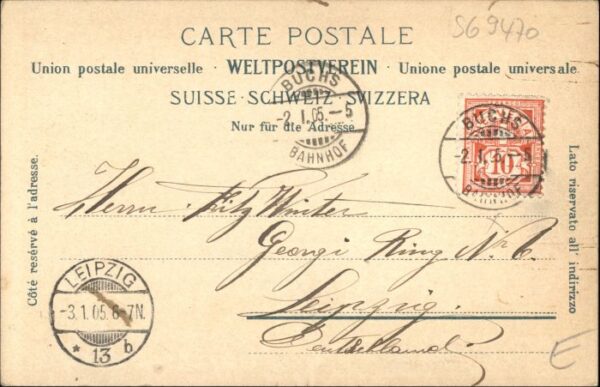 S69470
CARTE POSTALE
Union postale universelle · WELTPOSTVEREIN · Unione postale universale
SUISSE · SCHWEIZ · SVIZZERA
Nur für die Adresse
BUCHS
-2.I.05.-5
BAHNHOF
BUCHS
-2.I.05.-5
BAHNHOF
10
Côté resérvé à l'adresse.
Lato riservato all' indirizzo
Herrn Fritz Winter
Georgi Ring Nr. 6
Leipzig.
Deutschland
LEIPZIG
-3.1.05.6-7N.
* 13 b
E